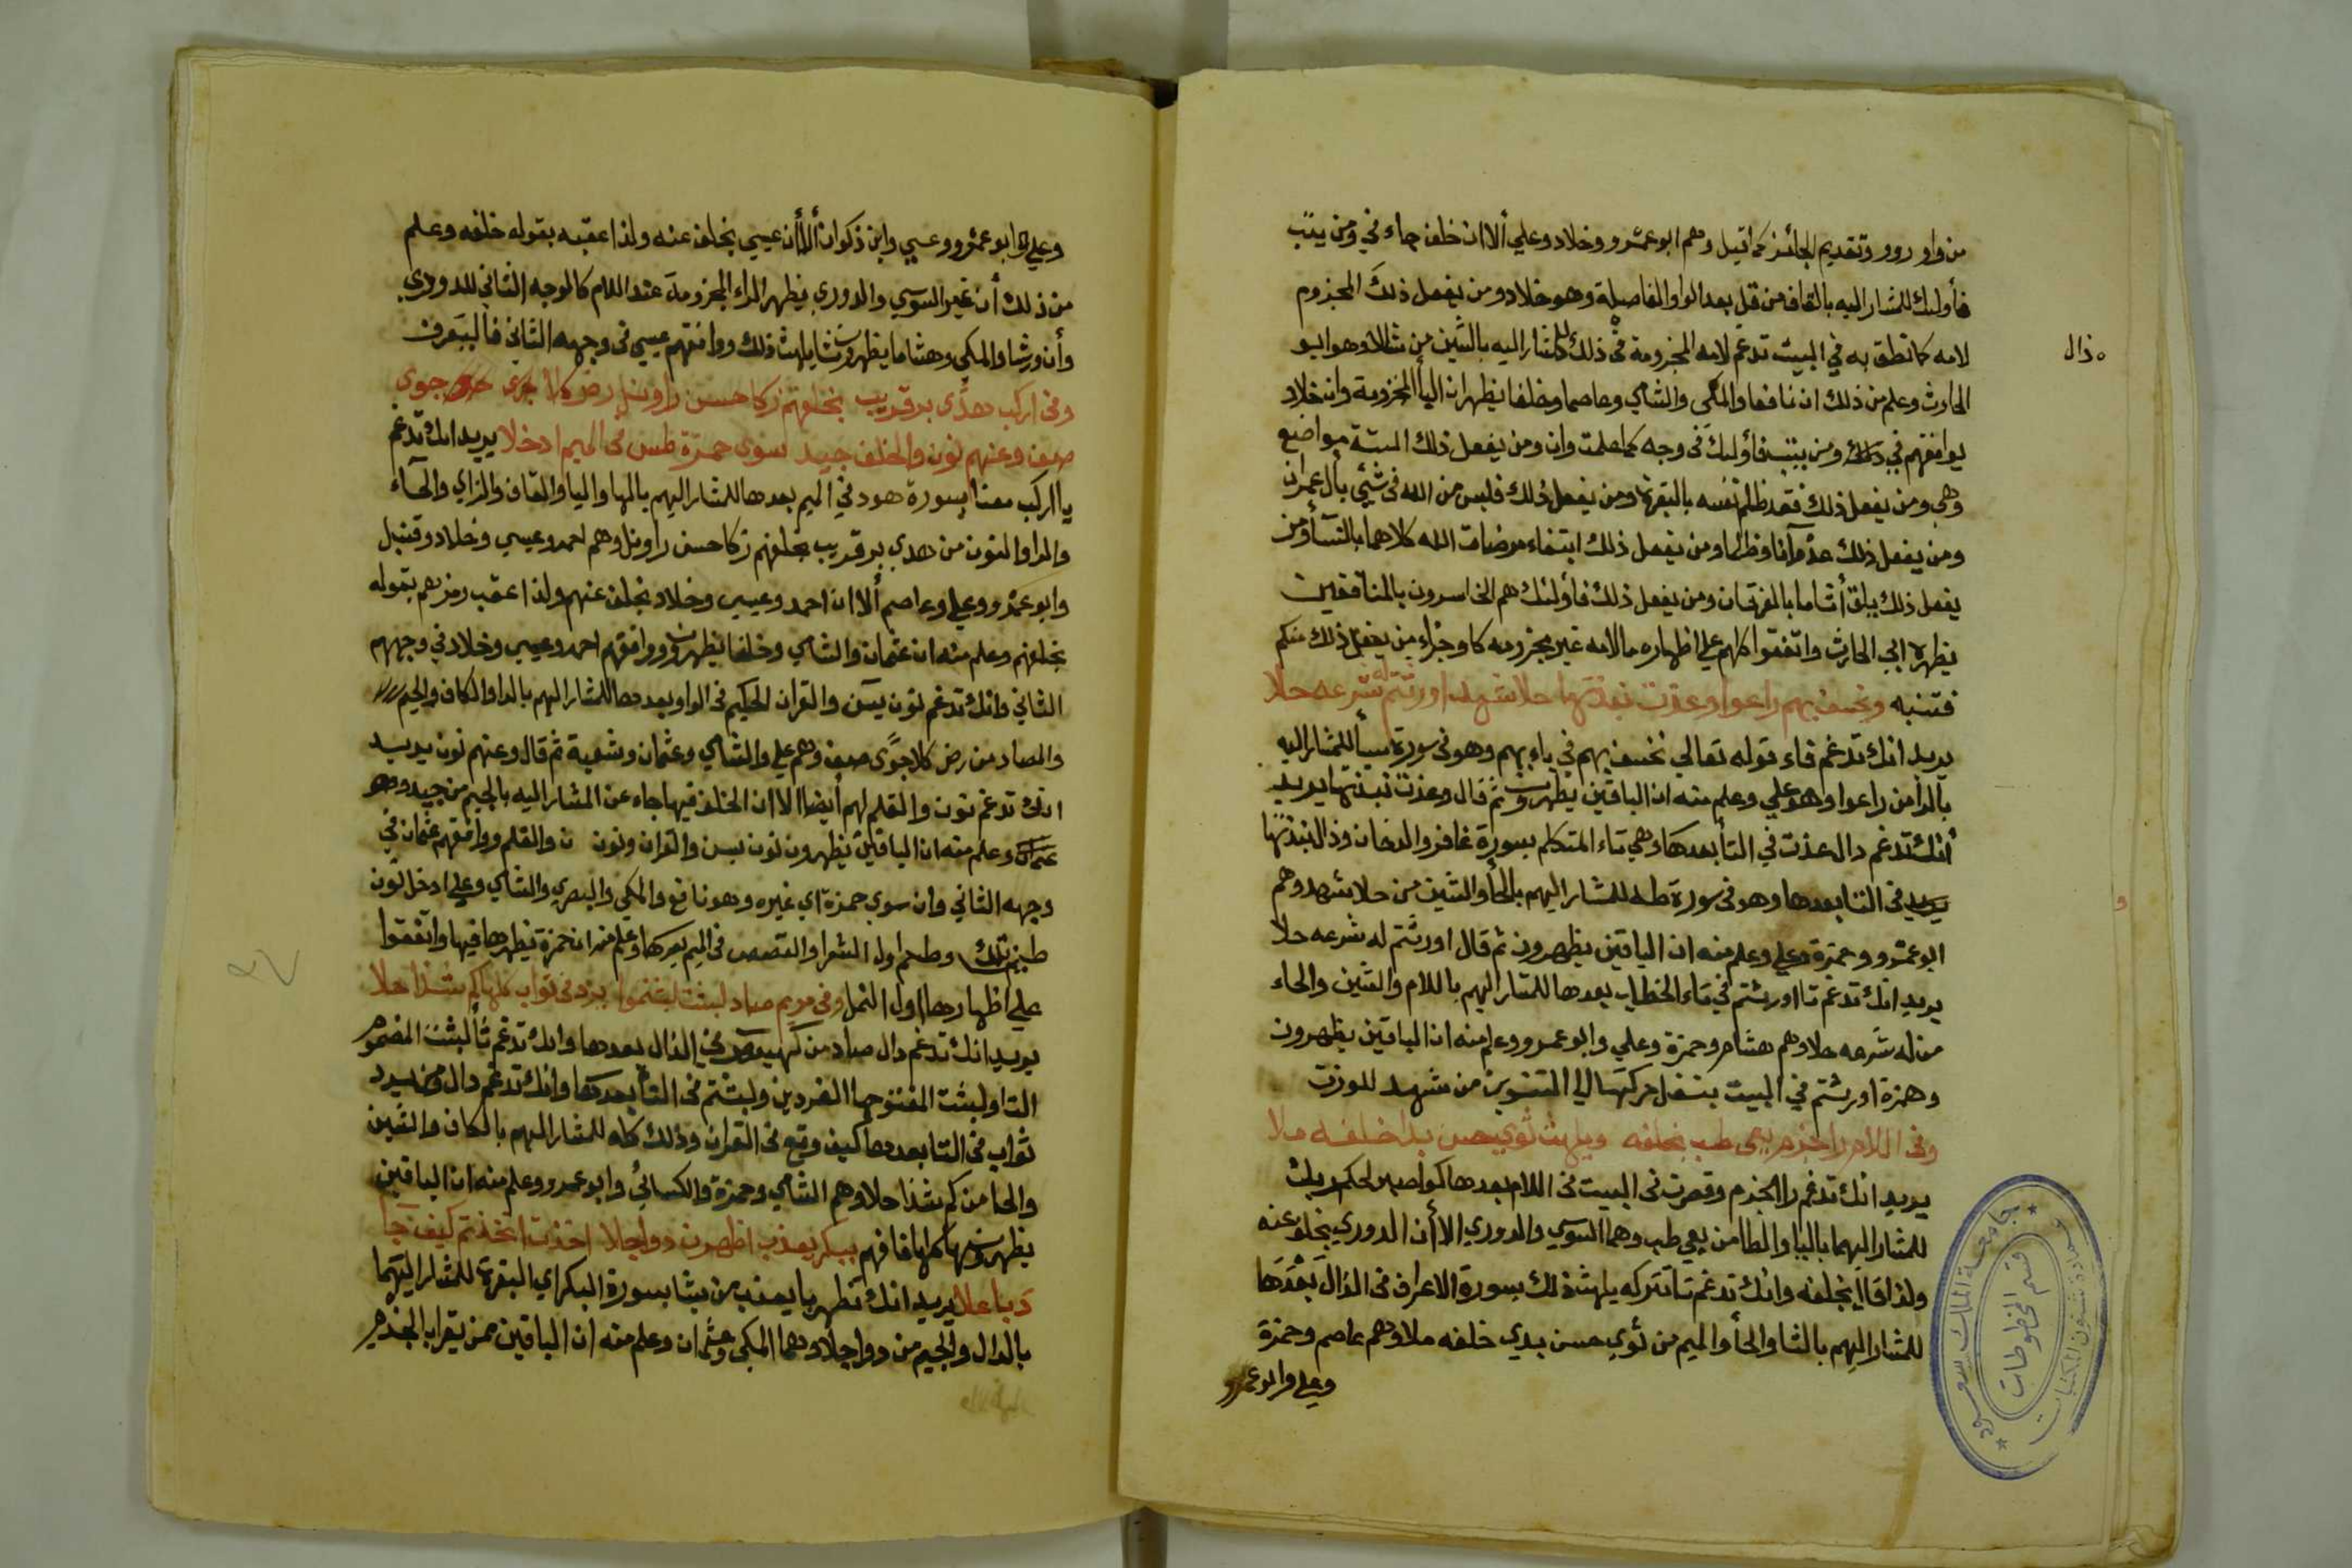 من واو روو وتقديم الجائز كما قيل وهم ابو عمرو وخلاد وعلي ألا ان خلف جاء في ومن يتب
فأولئك للمشار اليه بالقاف من قل بعد الواو الفاصلة وهو خلاد ومن يفعل ذلك المجزوم
لامه كما نطق به في البيت تدغم لامه المجزومة في ذلك للمشار اليه بالشين من شالا وهو ابو
ذال
الحارث وعلم من ذلك ان نافعا والمكي والشامي وعاصما وخلفا يظهران اليا المجزومة وان خلاد
يوافقهم في ومن يتب فأولئك في وجه كما علمت وان ومن يفعل ذلك الستة مواضع
وهي ومن يفعل ذلك فقد ظلم نفسه بالبقرة ومن يفعل ذلك فليس من الله في شيء بأل عمران
ومن يفعل ذلك عدوانا وظلما ومن يفعل ذلك ابتغاء مرضات الله كلاهما بالنسآ ومن
يفعل ذلك يلق أثاما بالفرقان ومن يفعل ذلك فأولئك هم الخاسرون بالمنافقين
يظهره ابي الحارث واتفقوا كلهم علي اظهاره مالامه غير مجزومه كما وجزاء من يفعل ذلك منكم
فتنبه ونخسف بهم راعوا وعذت نبذتها حلا شهد اورثتم له شرعه حلا
يريد انك تدغم فاء قوله تعالي نخسف بهم في باء بهم وهو في سورة سبأ للمشار اليه
بالرا من راعوا وهو علي وعلم منه ان الباقين يظهرون ثم قال وعذت نبذتها يريد
أنك تدغم دال عذت في التأ بعدها وهي تاء المتكلم بسورة غافر والدخان وذال نبذتها
يريد في التا بعدها وهو في سورة طه للمشار اليهم بالحأ والشين من حلا شهد وهم
ابو عمرو وحمزة وعلي وعلم منه ان الباقين يظهرون ثم قال اورثتم له شرعه حلا
يريد انك تدغم ثا اورثتم في تاء الخطاب بعدها للمشار اليهم باللام والشين والحاء
من له شرعه حلا وهم هشام وحمزة وعلي وابو عمرو وعلم منه ان الباقين يظهرون
وهمزة اورثتم في البيت بنقل حركتها الي التنوين من شهد للوزن
وفي اللام راجزم يعي طب بخلفه ويلهث ثوي حسن بدا خلفه ملا
يريد انك تدغم را الجزم وقصرت في البيت في اللام بعدها كواصبر لحكم ربك
للمشار اليهما باليا والطا من يعي طب وهما السوسي والدوري الا أن الدوري بخلف عنه
ولذا قال بخلفه وانك تدغم ثا تتركه يلهث ذلك بسورة الاعراف في الذال بعدها
للمشار اليهم بالثا والحأ والميم من ثوي حسن بدي خلفه ملا وهم عاصم وحمزة
وعلي وابو عمرو
وعلي وابو عمرو وعيسي وابن ذكوان ألا أن عيسي بخلف عنه ولذا عقبه بقوله خلفه وعلم
من ذلك أن غير السوسي والدوري يظهر الراء المجزومة عند اللام كالوجه الثاني للدوري
وأن ورشا والمكي وهشاما يظهرون ثا يلهث ذلك ووافقهم عيسي في وجهه الثاني فا ليتعرف
وفي اركب هدًى بر قريب بخلفهم زكا حسن راو نل رض كلا جوى
صف وعنهم نون والخلف جيد سوى حمزة طس في الميم ادخلا يريد انك تدغم
با اركب معنا بسورة هود في الميم بعدها للمشار اليهم بالها والبا والقاف والزاي والحآء
والرا والنون من هدي بر قريب بخلفهم زكا حسن راو نل وهم احمد وعيسي وخلاد وقنبل
وابو عمرو وعلي وعاصم ألا ان احمد وعيسي وخلاد بخلف عنهم ولذا عقب رمزهم بقوله
بخلفهم وعلم منه ان عثمان والشامي وخلفا يظهرون ووافقهم احمد وعيسي وخلاد في وجههم
الثاني وانك تدغم نون يسن والقران الحكيم في الواو بعدها للمشار اليهم بالرا والكاف والجيم
والصاد من رض كلا جوًى صف وهم علي والشامي وعثمان وشعبة ثم قال وعنهم نون يريد
انك تدغم نون والقلم لهم أيضا الا ان الخلف فيها جاء عن المشار اليه بالجيم من جيد وهو
عثمان وعلم منه ان الباقين يظهرون نون يسن والقران ونون ن والقلم ووافقهم عثمان في
وجهه الثاني وان سوى حمزة اي غيره وهو نافع والمكي والبصري والشامي وعلي ادخل نون
طس تلك وطسم اول الشعرا والقصص في الميم بعدها وعلم منه ان حمزة يظهرها فيها واتفقوا
علي اظهارها اول النمل وفي مريم صاد لبثت لبثتموا يرد في ثواب كلها كم شذا حلا
يريد انك تدغم دال صاد من كهيعص في الذال بعدها وانك تدغم ثأ لبثت المضموم
التا ولبثت المفتوحها الفردين ولبثتم في التأ بعدها وانك تدغم دال ومن يرد
ثواب في الثا بعدها كيف وقع في القران وذلك كله للمشار اليهم بالكاف والشين
والحا من كم شذا حلا وهم الشامي وحمزة والكسائي وابو عمرو وعلم منه ان الباقين
يظهرونها كلها فافهم ببكر يعذب اظهرن دوا جلا اخذت اتخذتم كيف جا
دبا علا يريد انك تظهر با يعذب من يشا بسورة البكر اي البقرة للمشار اليهما
بالدال والجيم من دوا جلا وهما المكي وعثمان وعلم منه ان الباقين ممن يقرا بالجزم